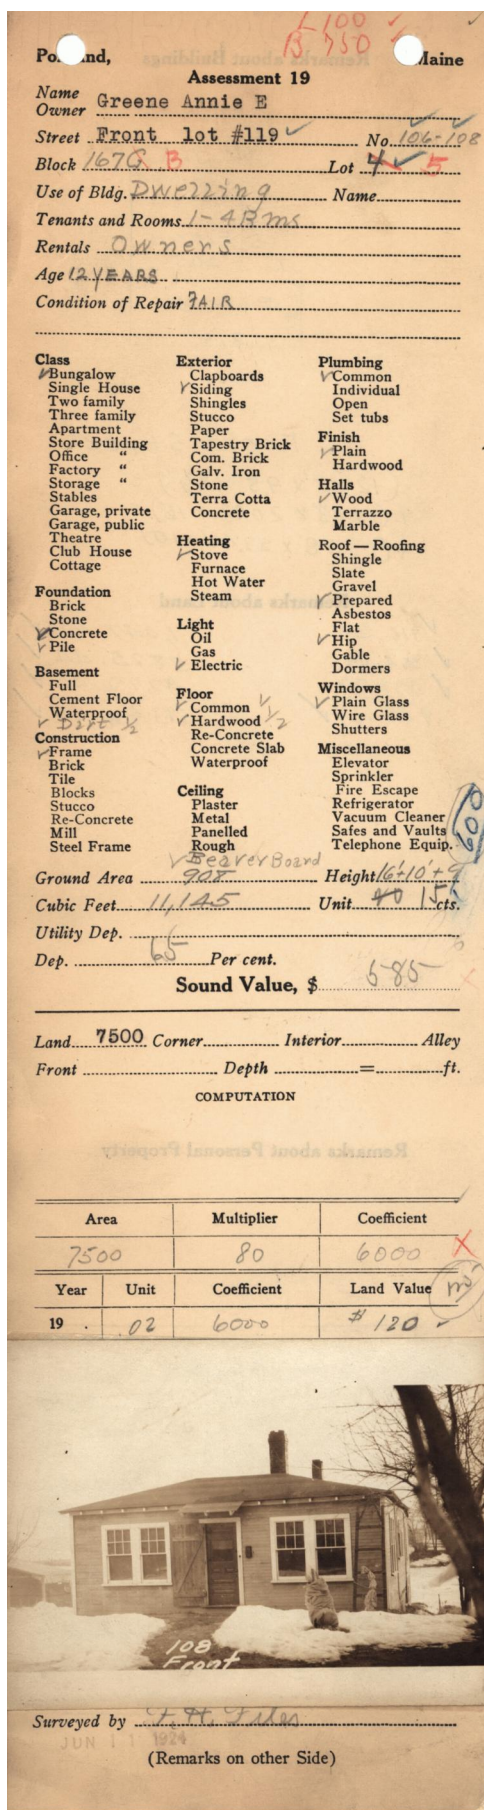 L 100
B 750
Portland, Maine
Assessment 19
Name
Owner Greene Annie E
Street Front lot #119 No. 106-108
Block 167G B Lot 4 5
Use of Bldg. Dwelling Name
Tenants and Rooms 1-4 Rms
Rentals Owners
Age 12 YEARS
Condition of Repair FAIR
Class
Bungalow
Single House
Two family
Three family
Apartment
Store Building
Office "
Factory "
Storage "
Stables
Garage, private
Garage, public
Theatre
Club House
Cottage
Foundation
Brick
Stone
Concrete
Pile
Basement
Full
Cement Floor
Waterproof
Dirt 1/2
Construction
Frame
Brick
Tile
Blocks
Stucco
Re-Concrete
Mill
Steel Frame
Exterior
Clapboards
Siding
Shingles
Stucco
Paper
Tapestry Brick
Com. Brick
Galv. Iron
Stone
Terra Cotta
Concrete
Heating
Stove
Furnace
Hot Water
Steam
Light
Oil
Gas
Electric
Floor
Common 1/2
Hardwood 1/2
Re-Concrete
Concrete Slab
Waterproof
Ceiling
Plaster
Metal
Panelled
Rough
Beaver Board
Plumbing
Common
Individual
Open
Set tubs
Finish
Plain
Hardwood
Halls
Wood
Terrazzo
Marble
Roof — Roofing
Shingle
Slate
Gravel
Prepared
Asbestos
Flat
Hip
Gable
Dormers
Windows
Plain Glass
Wire Glass
Shutters
Miscellaneous
Elevator
Sprinkler
Fire Escape
Refrigerator
Vacuum Cleaner
Safes and Vaults
Telephone Equip.
600
Ground Area 908 Height 16'+10'+9
Cubic Feet 11,145 Unit 40 15 cts.
Utility Dep.
Dep. 65 Per cent.
Sound Value, $ 585
Land 7500 Corner Interior Alley
Front Depth = ft.
COMPUTATION
Remarks about Personal Property
Area Multiplier Coefficient
7500 80 6000
Year Unit Coefficient Land Value
19 . .02 6000 $120
108
Front
Surveyed by F. H. Files
JUN 11 1924
(Remarks on other Side)